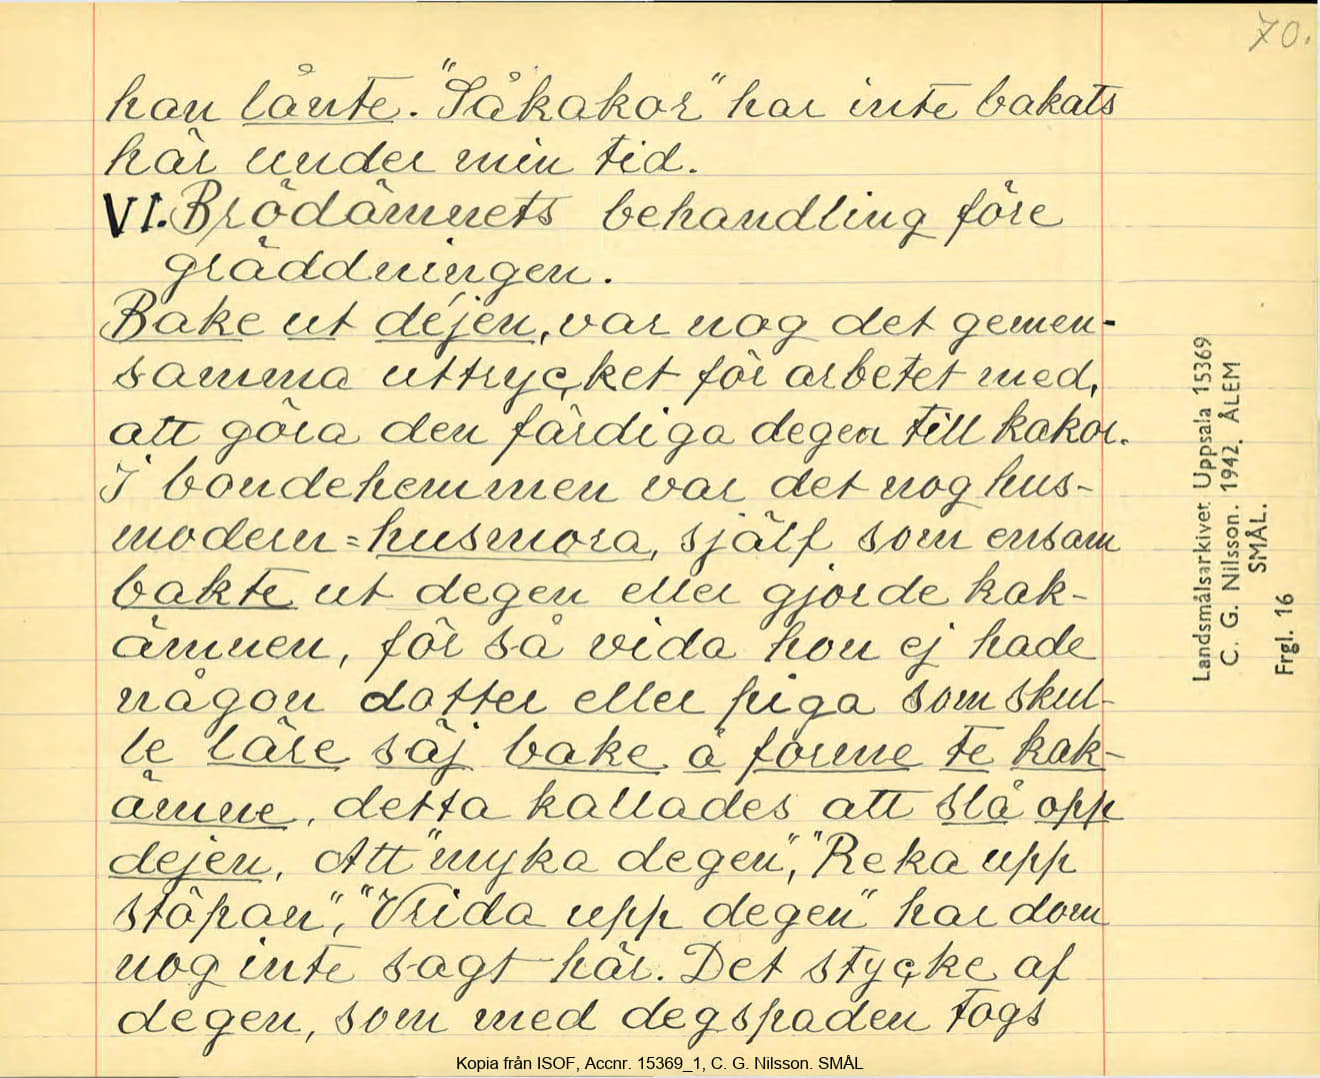 70.
han lånte. "Såkakor" har inte bakats
här under min tid.
VI. Brödämnets behandling före
gräddningen.
Bake ut dejen, var nog det gemen-
samma uttrycket för arbetet med,
att göra den färdiga degen till kakor.
I bondehemmen var det nog hus-
modern = husmora, själf som ensam
bakte ut degen eller gjorde kak-
ämnen, för så vida hon ej hade
någon dotter eller piga som skul-
le läre säj bake å forme te kak-
ämne, detta kallades att slå opp
dejen, Att "myka degen", "Reka upp
stöpan", "Vrida upp degen" har dom
nog inte sagt här. Det stycke af
degen, som med degspaden togs
Landsmålsarkivet Uppsala 15369
C. G. Nilsson. 1942. ÅLEM
SMÅL.
Frgl. 16
Kopia från ISOF, Accnr. 15369_1, C. G. Nilsson. SMÅL